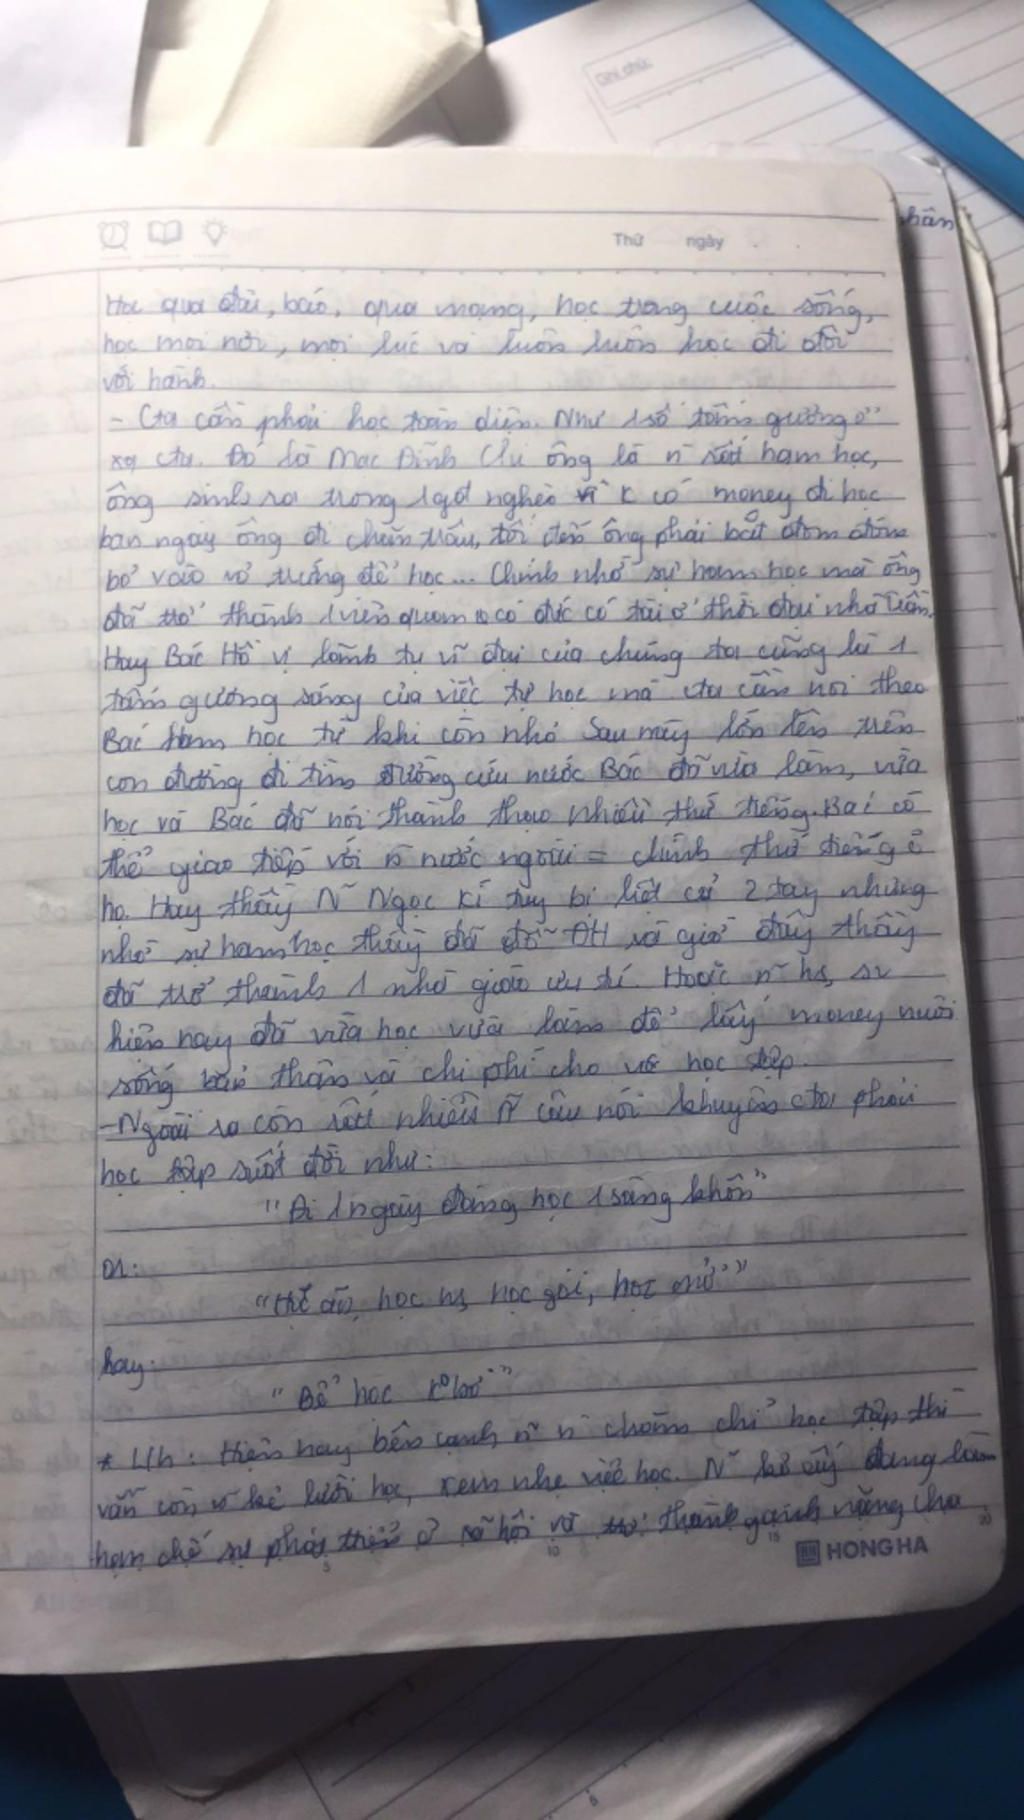 Ghi chú:
hân
Thứ ngày
Học qua đài, báo, qua mạng, học trong cuộc sống,
học mọi nơi, mọi lúc và luôn luôn học đi đôi
với hành.
- Cta cần phải học toàn diện. Như 1 số tấm gương ở
xq cta. Đó là Mạc Đĩnh Chi ông là n rất ham học,
ông sinh ra trong 1 gđ nghèo vì k có money đi học
ban ngày ông đi chăn trâu, tối đến ông phải bắt đom đóm
bỏ vào vỏ trứng để học... Chính nhờ sự ham học mà ông
đã trở thành 1 viên quan có đức có tài ở thời đại nhà Trần.
Hay Bác Hồ vị lãnh tụ vĩ đại của chúng ta cũng là 1
tấm gương sáng của việc tự học mà cta cần noi theo
Bác ham học từ khi còn nhỏ sau này lớn lên trên
con đường đi tìm đường cứu nước Bác đã vừa làm, vừa
học và Bác đã nói thành thạo nhiều thứ tiếng. Bác có
thể giao tiếp với n nước ngoài = chính thứ tiếng ở
họ. Hay thầy N~ Ngọc Kí tuy bị liệt cả 2 tay nhưng
nhờ sự ham học thầy đã đỗ ĐH và giờ đây thầy
đã trở thành 1 nhà giáo ưu tú. Hoặc n~ hs, sv
hiện nay đã vừa học vừa làm để lấy money nuôi
sống bản thân và chi phí cho học tập.
- Ngoài ra còn rất nhiều n~ câu nói khuyên cta phải
học tập suốt đời như:
"Đi 1 ngày đàng học 1 sàng khôn"
or:
"Học ăn, học ns, học gói, học mở"
hay:
"Bể học k° bờ"
* Lhh: Hiện nay bên cạnh n~ n chăm chỉ học tập thì
vẫn còn n~ kẻ lười học, xem nhẹ việc học. N~ kẻ ấy đang làm
hạn chế sự phát triển ở xã hội và trở thành gánh nặng cho
5 10 15 20
HONG HA